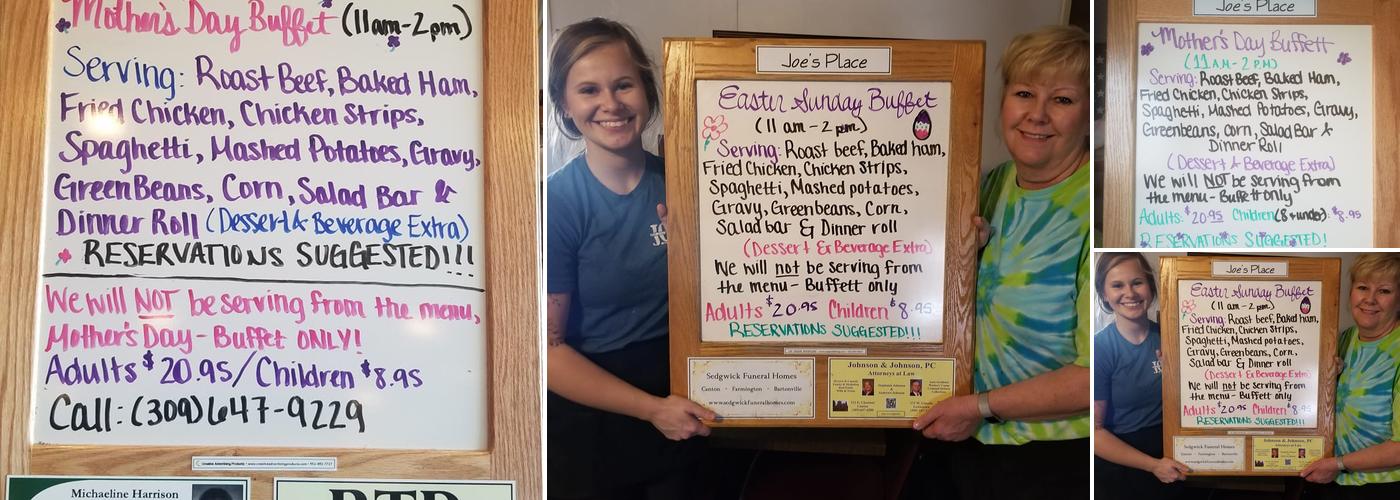 Mother's Day Buffet (11am-2pm)
Serving: Roast Beef, Baked Ham,
Fried Chicken, Chicken Strips,
Spaghetti, Mashed Potatoes, Gravy,
Green Beans, Corn, Salad Bar &
Dinner Roll (Dessert & Beverage Extra)
RESERVATIONS SUGGESTED!!!
We will NOT be serving from the menu,
Mother's Day - Buffet ONLY!
Adults $20.95/Children $8.95
Call: (309) 647-9229
Creative Advertising Products
Michaeline Harrison
RTR
Joe's Place
Easter Sunday Buffet
(11 am - 2 pm)
Serving: Roast beef, Baked ham,
Fried Chicken, Chicken Strips,
Spaghetti, Mashed potatoes,
Gravy, Greenbeans, Corn,
Salad bar & Dinner roll
(Dessert & Beverage Extra)
We will not be serving from
the menu - Buffett only
Adults $20.95 Children $8.95
RESERVATIONS SUGGESTED!!!
Sedgwick Funeral Homes
Canton - Farmington - Bartonville
www.sedgwickfuneralhomes.com
Johnson & Johnson, PC
Attorneys at Law
Joe's Place
Mother's Day Buffett
(11 AM - 2 PM)
Serving: Roast Beef, Baked Ham,
Fried Chicken, Chicken Strips,
Spaghetti, Mashed Potatoes, Gravy,
Greenbeans, Corn, Salad Bar &
Dinner Roll
(Dessert & Beverage Extra)
We will NOT be serving from
the menu - Buffett only
Adults: $20.95 Children (8 & under): $8.95
RESERVATIONS SUGGESTED!
Joe's Place
Easter Sunday Buffet
(11 am - 2 pm)
Serving: Roast beef, Baked ham,
Fried Chicken, Chicken Strips,
Spaghetti, Mashed potatoes,
Gravy, Greenbeans, Corn,
Salad bar & Dinner roll
(Dessert & Beverage Extra)
We will not be serving from
the menu - Buffett only
Adults $20.95 Children $8.95
RESERVATIONS SUGGESTED!!!
Sedgwick Funeral Homes
Canton - Farmington - Bartonville
www.sedgwickfuneralhomes.com
Johnson & Johnson, PC
Attorneys at Law